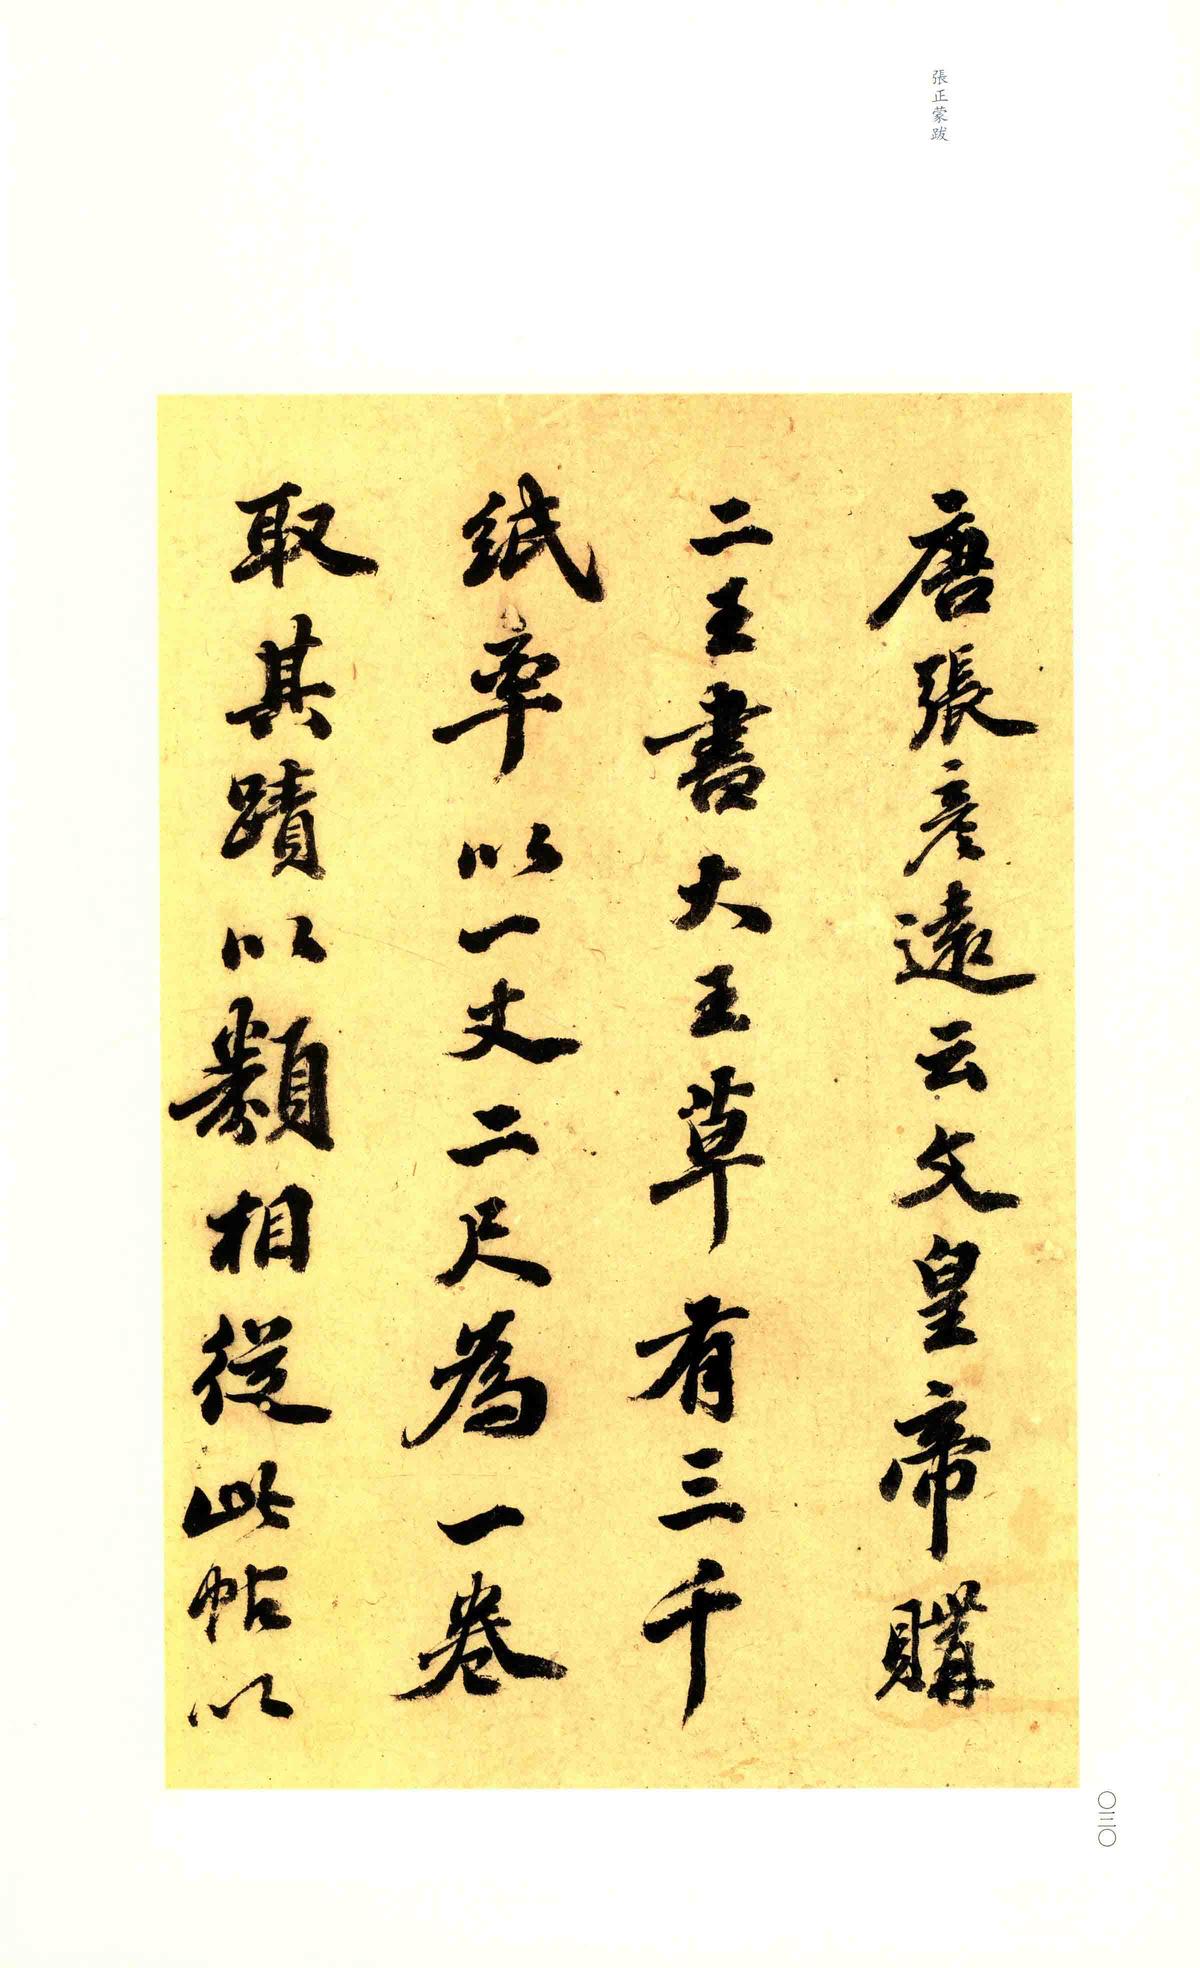 張正蒙跋
唐張彥遠云文皇帝購
二王書大王草有三千
紙率以一丈二尺為一卷
取其蹟以類相從此帖以
〇三〇